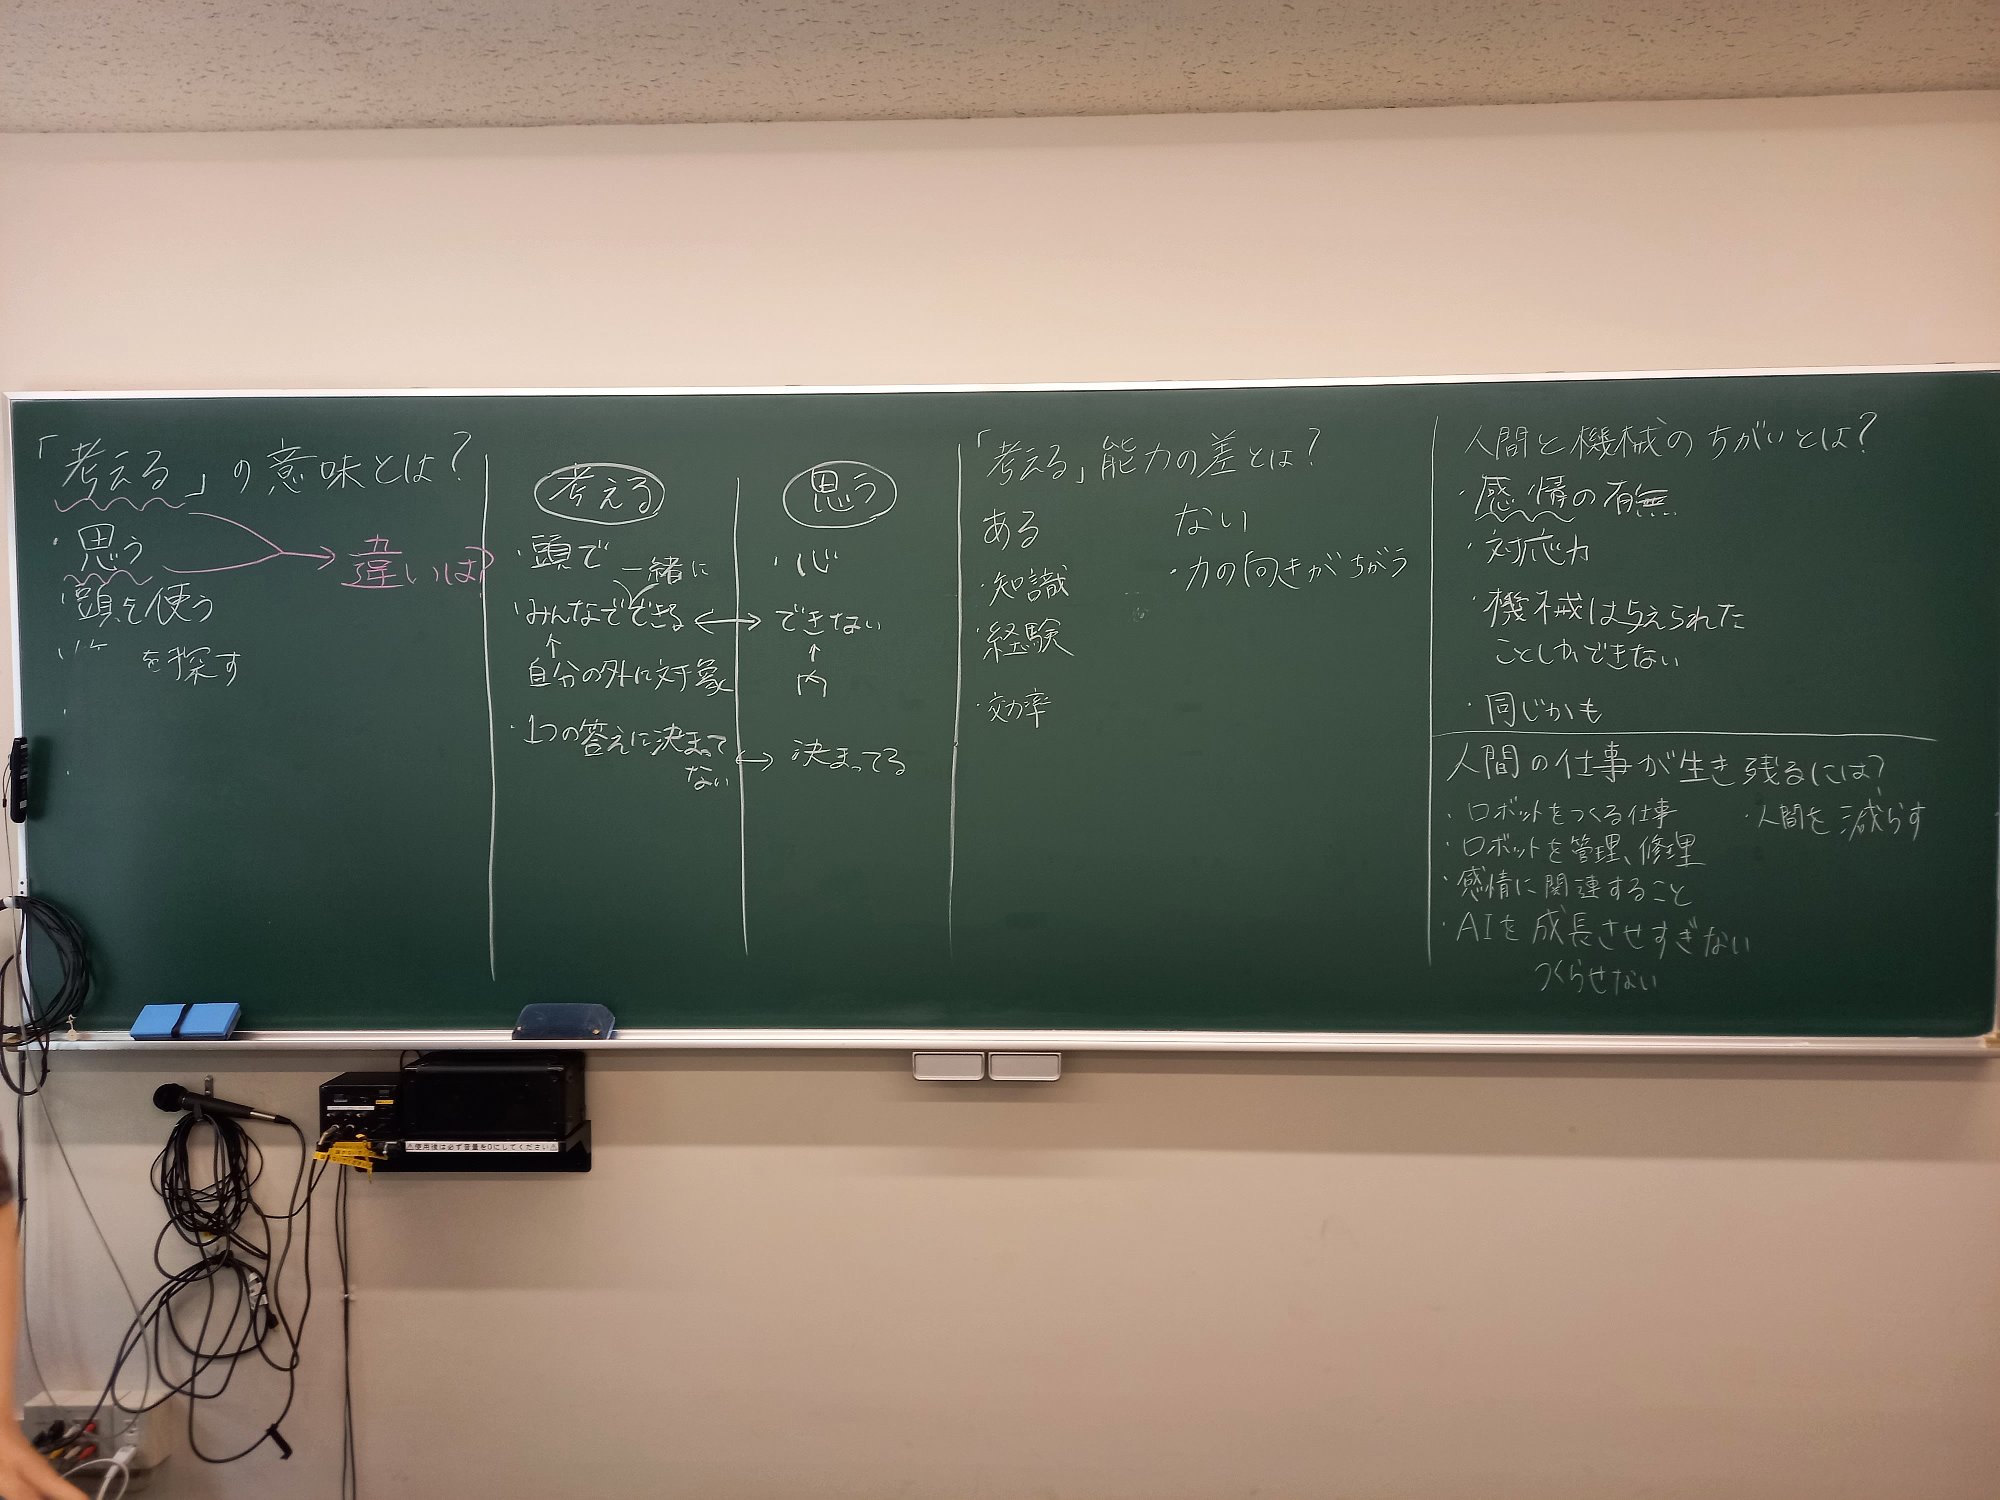 「考える」の意味とは?
・思う
・頭を使う
を探す
違いは?
考える
・頭で
一緒に
・みんなでできる
↑
自分の外に対象
・1つの答えに決まって
ない
↔
↔
思う
・心
できない
↑
内
決まってる
「考える」能力の差とは?
ある
・知識
・経験
・効率
ない
・力の向きがちがう
人間と機械のちがいとは?
・感情の有無
・対応力
・機械は与えられた
ことしかできない
・同じかも
人間の仕事が生き残るには?
・ロボットをつくる仕事
・ロボットを管理、修理
・感情に関連すること
・AIを成長させすぎない
つくらせない
・人間を減らす
⚠使用後は必ず音量を0にしてください⚠